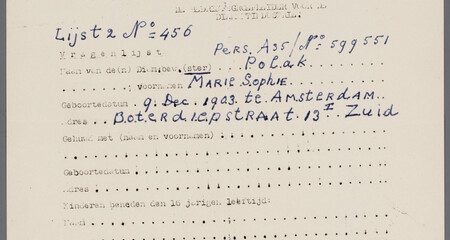 DE GEMACHTIGDE LEIDER VOOR DE
Lijst 2 No 456
Pers. A35/No 599551
V r a g e n l i j s t
Naam van de(n) (ster) Polak
voornamen Marie Sophie
Geboortedatum 9 Dec. 1903 te Amsterdam
Adres Boterdiepstraat 13 I Zuid
Gehuwd met (naam en voornamen)
Geboortedatum
Adres
Kinderen beneden den 18 jarigen leeftijd:
Naam